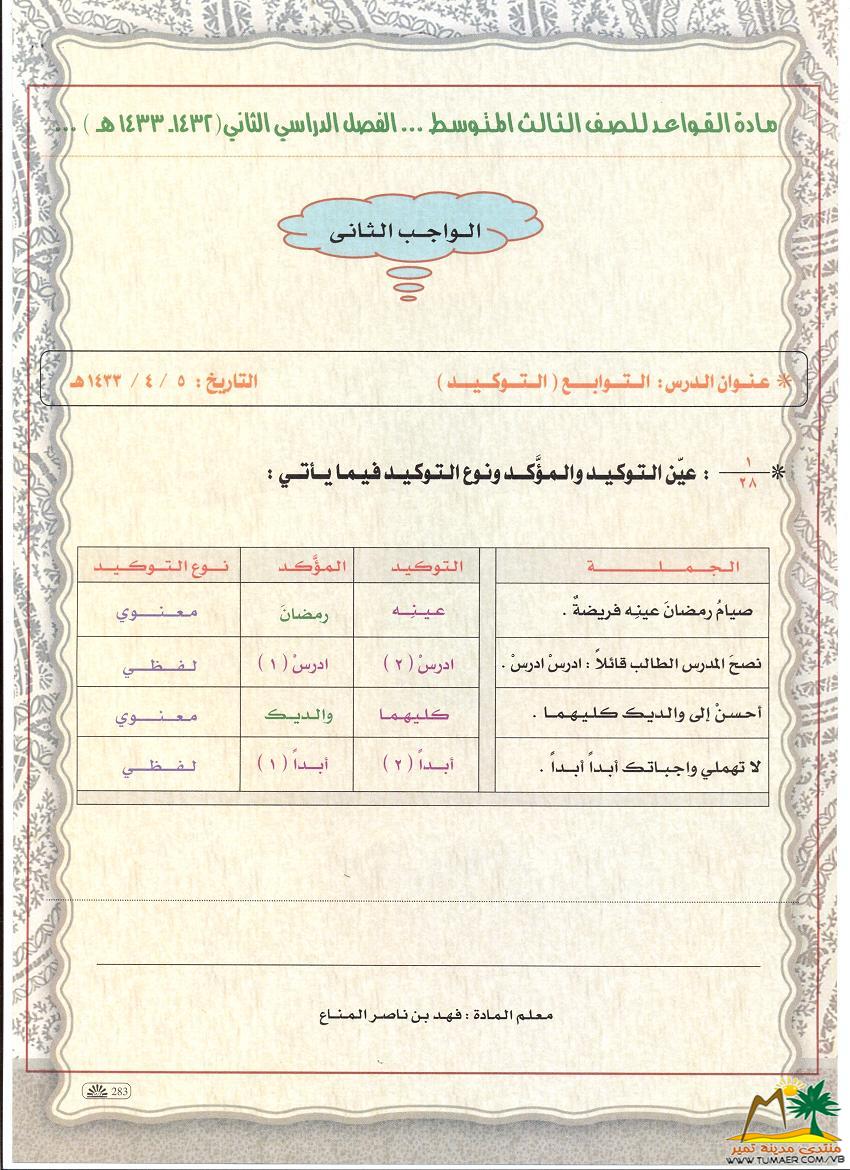 مادة القواعد للصف الثالث المتوسط ... الفصل الدراسي الثاني (١٤٣٢ـ ١٤٣٣ هـ ) ...
الـواجـب الـثـانى
* عنـوان الدرس: الـتـوابـع ( الـتـوكـيـد ) التاريخ : ٥ / ٤ / ١٤٣٣هـ
* ١/٢٨ : عيّن التوكيد والمؤَّكد ونوع التوكيد فيما يأتي :
الـجـمـلـــة التوكيد المؤَّكد نـوع الـتـوكـيـد
صيامُ رمضانَ عينِه فريضةٌ . عـيـنِـه رمضانَ مـعـنـوي
نصحَ المدرس الطالب قائلاً : ادرسْ ادرسْ . ادرسْ ( ٢ ) ادرسْ ( ١ ) لـفـظـي
أحسنْ إلى والديك كليهما . كليهما والديك مـعـنـوي
لا تهملي واجباتك أبداً أبداً . أبـداً ( ٢ ) أبـداً ( ١ ) لـفـظـي
معلم المادة : فهد بن ناصر المناع
283
منتدى مدينة تمير
WWW.TUMAER.COM/VB